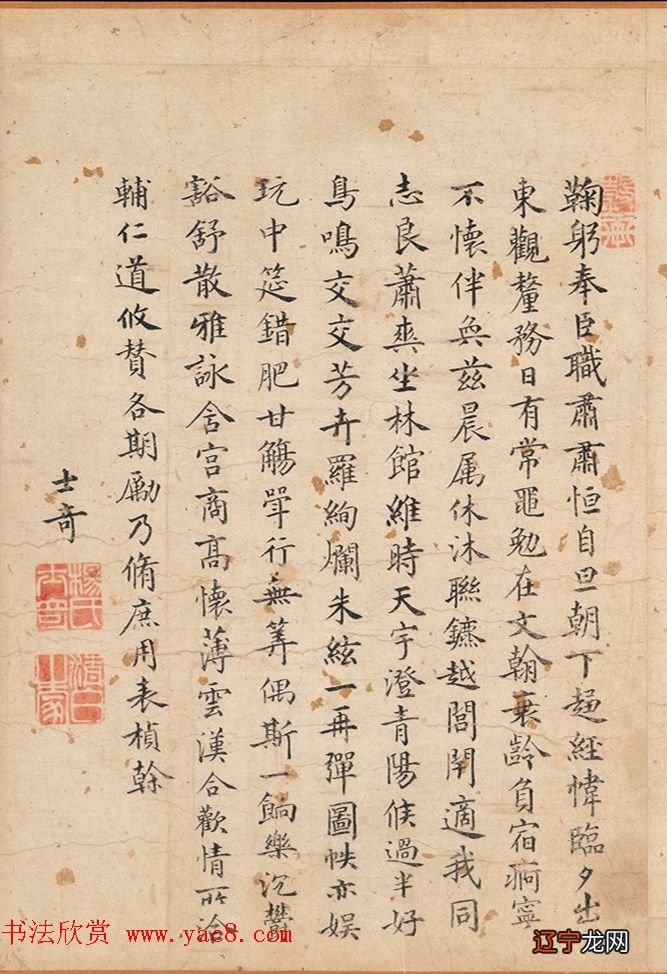 鞠躬奉臣職肅肅恒自旦朝下趍經幃臨夕出
東觀釐務日有常黽勉在文翰衰齡負宿痾寧
不懷伴奐茲晨属休沐聯鑣越閭閈適我同
志良蕭爽坐林館維時天宇澄青陽候過半好
鳥鳴交交芳卉羅絢爛朱絃一再彈圖帙亦娱
玩中筵錯肥甘觴斝行無筭偶斯一餉樂沉鬱
豁舒散雅詠含宮商高懷薄雲漢合歡情所洽
輔仁道攸贊各期勵乃脩庶用表楨榦
士奇
书法欣赏 www.yac8.com
辽宁龙网